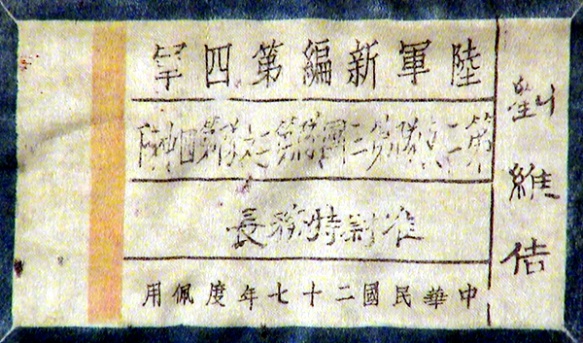 劉維佶
陸軍新編第四軍
第二支隊第三團
准尉特務長
中華民國二十七年度佩用